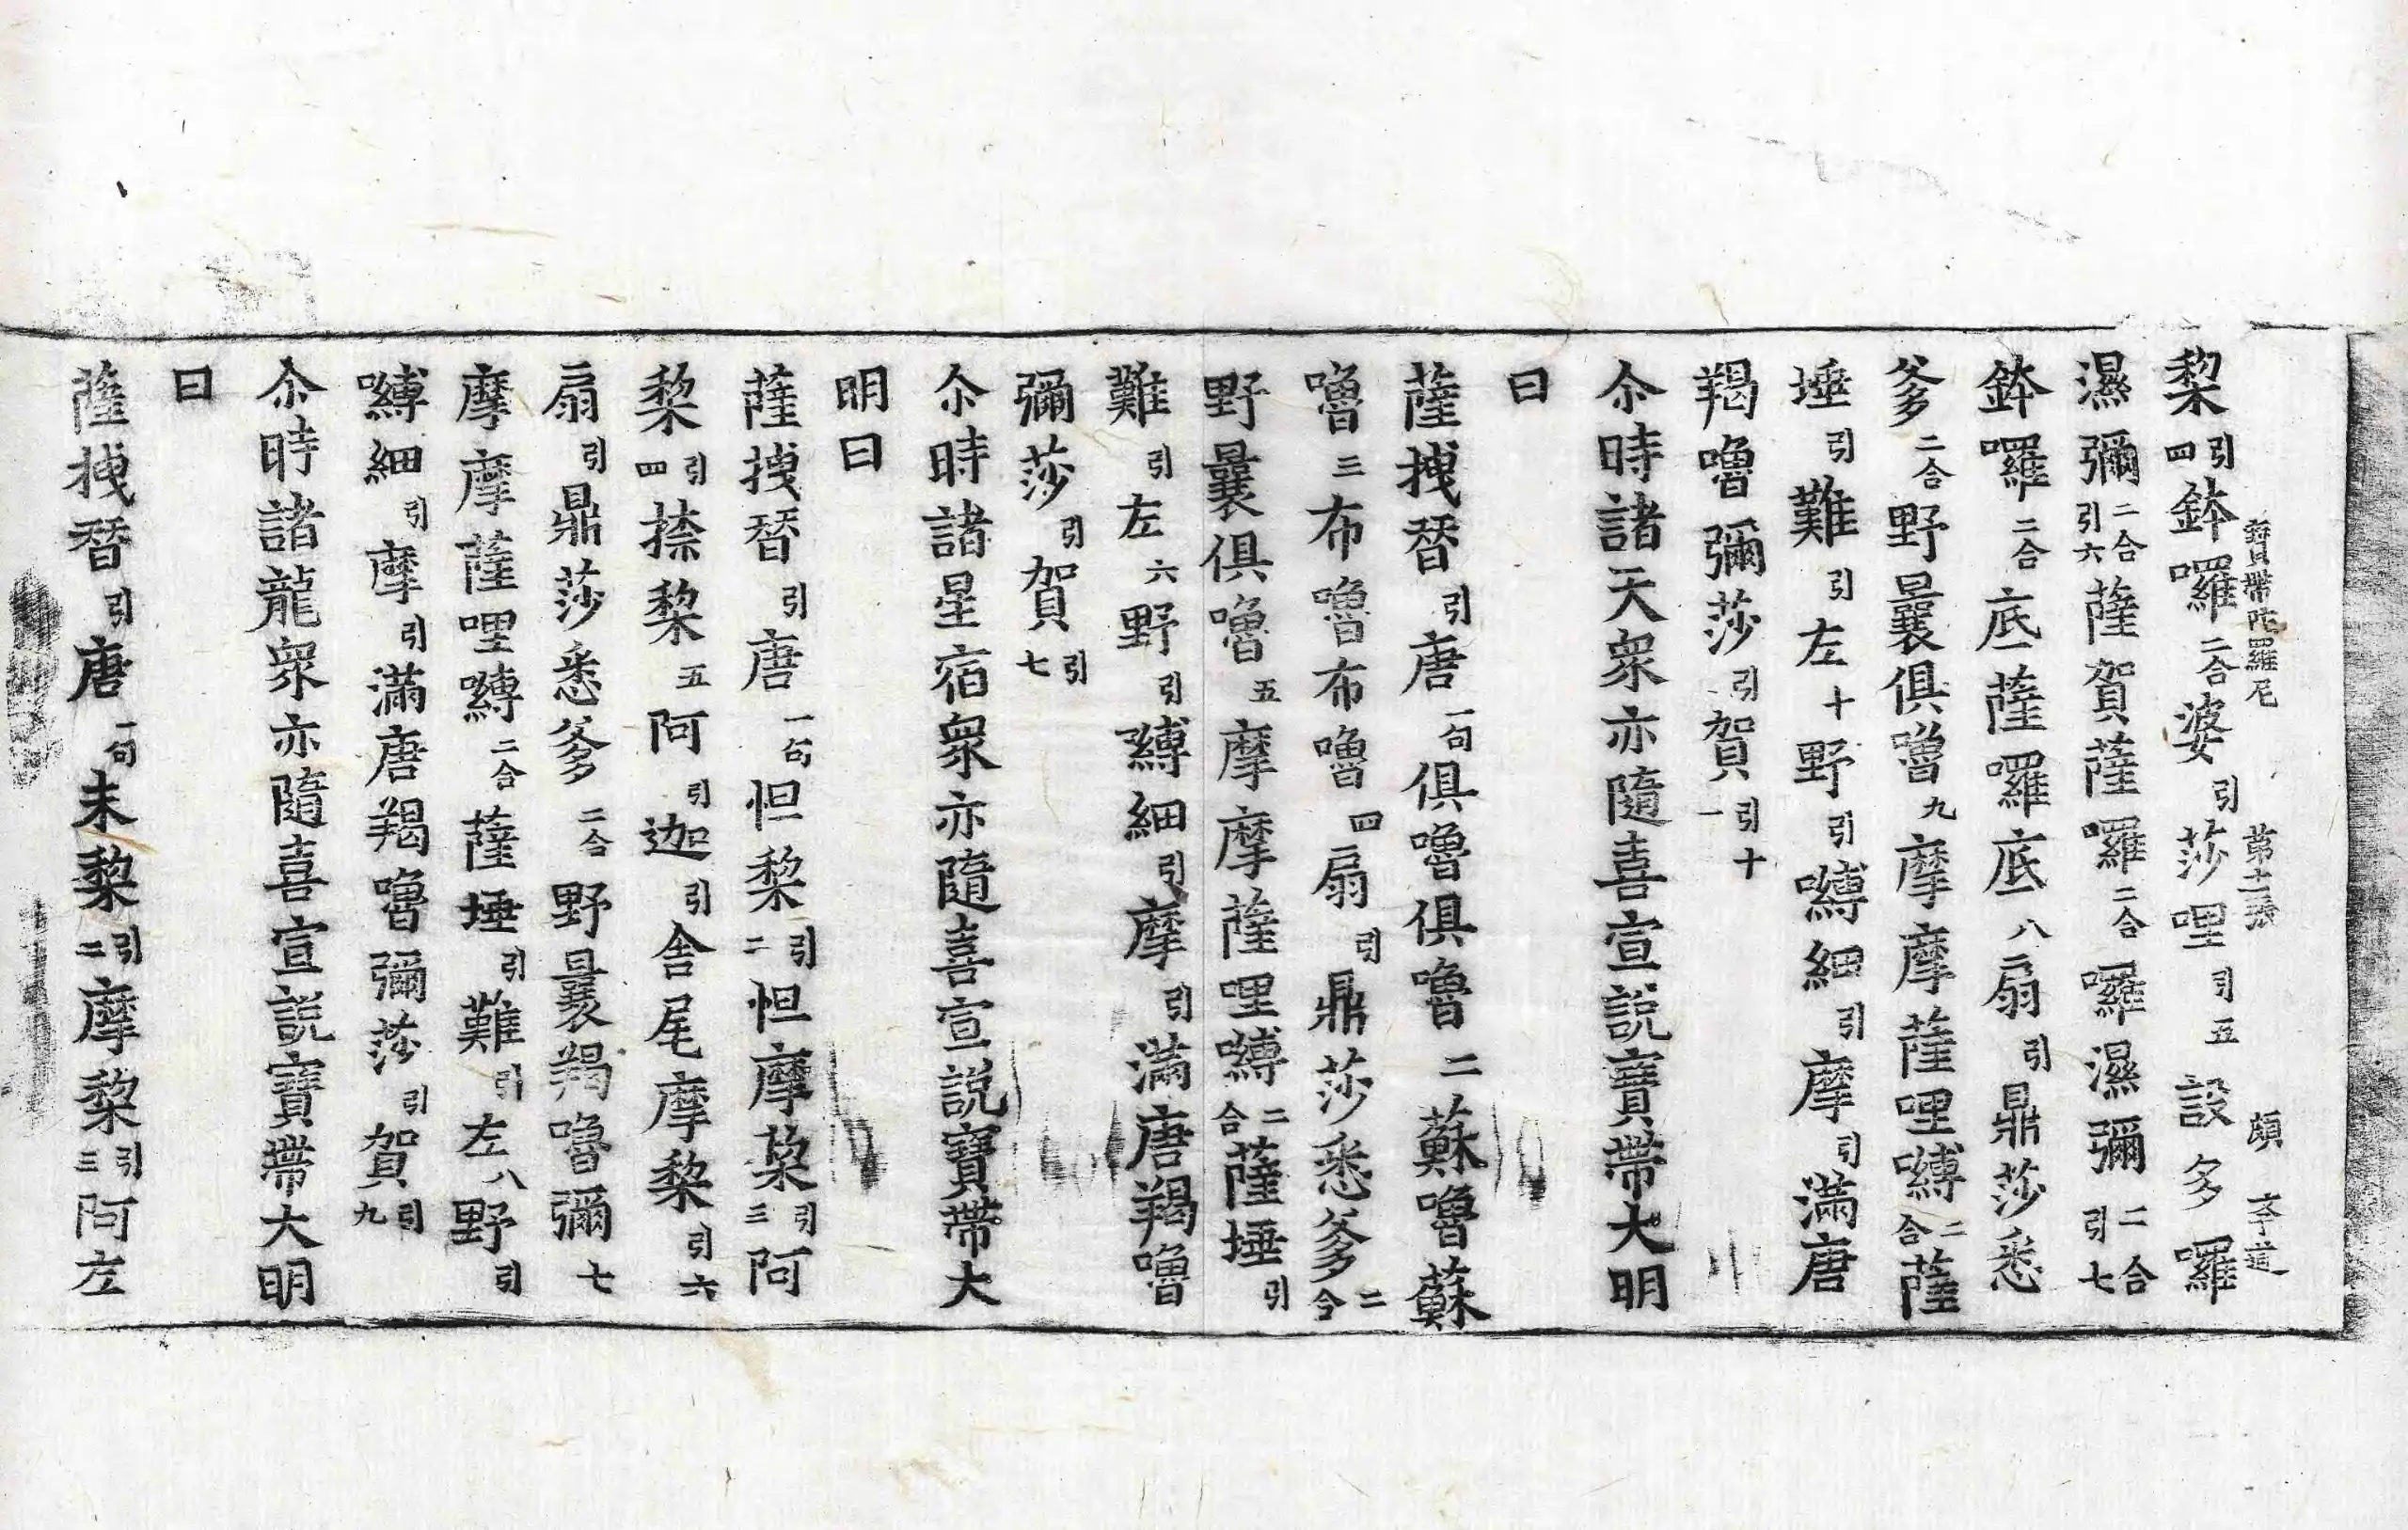 寶帶陀羅尼　第十二張　頗　字道
黎引四鉢囉二合婆引莎哩引五設多囉
濕彌二合引六薩賀薩囉二合囉濕彌二合引七
鉢囉二合底薩囉底八扇引鼎莎悉
爹二合野曩俱嚕九摩摩薩哩嚩二合薩
埵引難引左十野引嚩細引摩引滿唐
羯嚕彌莎引賀引十一
尒時諸天眾亦隨喜宣説寶帶大明
曰
薩拽㬱引唐一句俱嚕俱嚕二蘇嚕蘇
嚕三布嚕布嚕四扇引鼎莎悉爹二合
野曩俱嚕五摩摩薩哩嚩二合薩埵引
難引左六野引嚩細引摩引滿唐羯嚕
彌莎引賀引七
尒時諸星宿眾亦隨喜宣説寶帶大
明曰
薩拽㬱引唐一句怛黎引二怛摩黎引三阿
黎引四捺黎五阿引迦引舍尾摩黎引六
扇引鼎莎悉爹二合野曩羯嚕彌七
摩摩薩哩嚩二合薩埵引難引左八野引
嚩細引摩引滿唐羯嚕彌莎引賀引九
尒時諸龍眾亦隨喜宣説寶帶大明
曰
薩拽㬱引唐一句末黎引二摩黎引三阿左